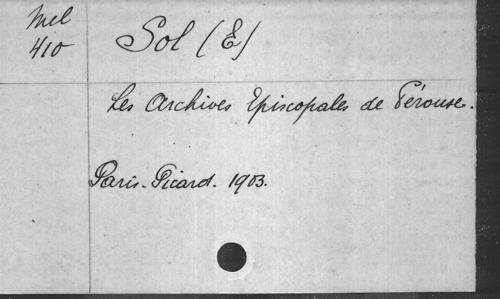 Mel
410
Sol (E)
Les Archives Episcopales de Pérouse.
Paris. Picard. 1903.